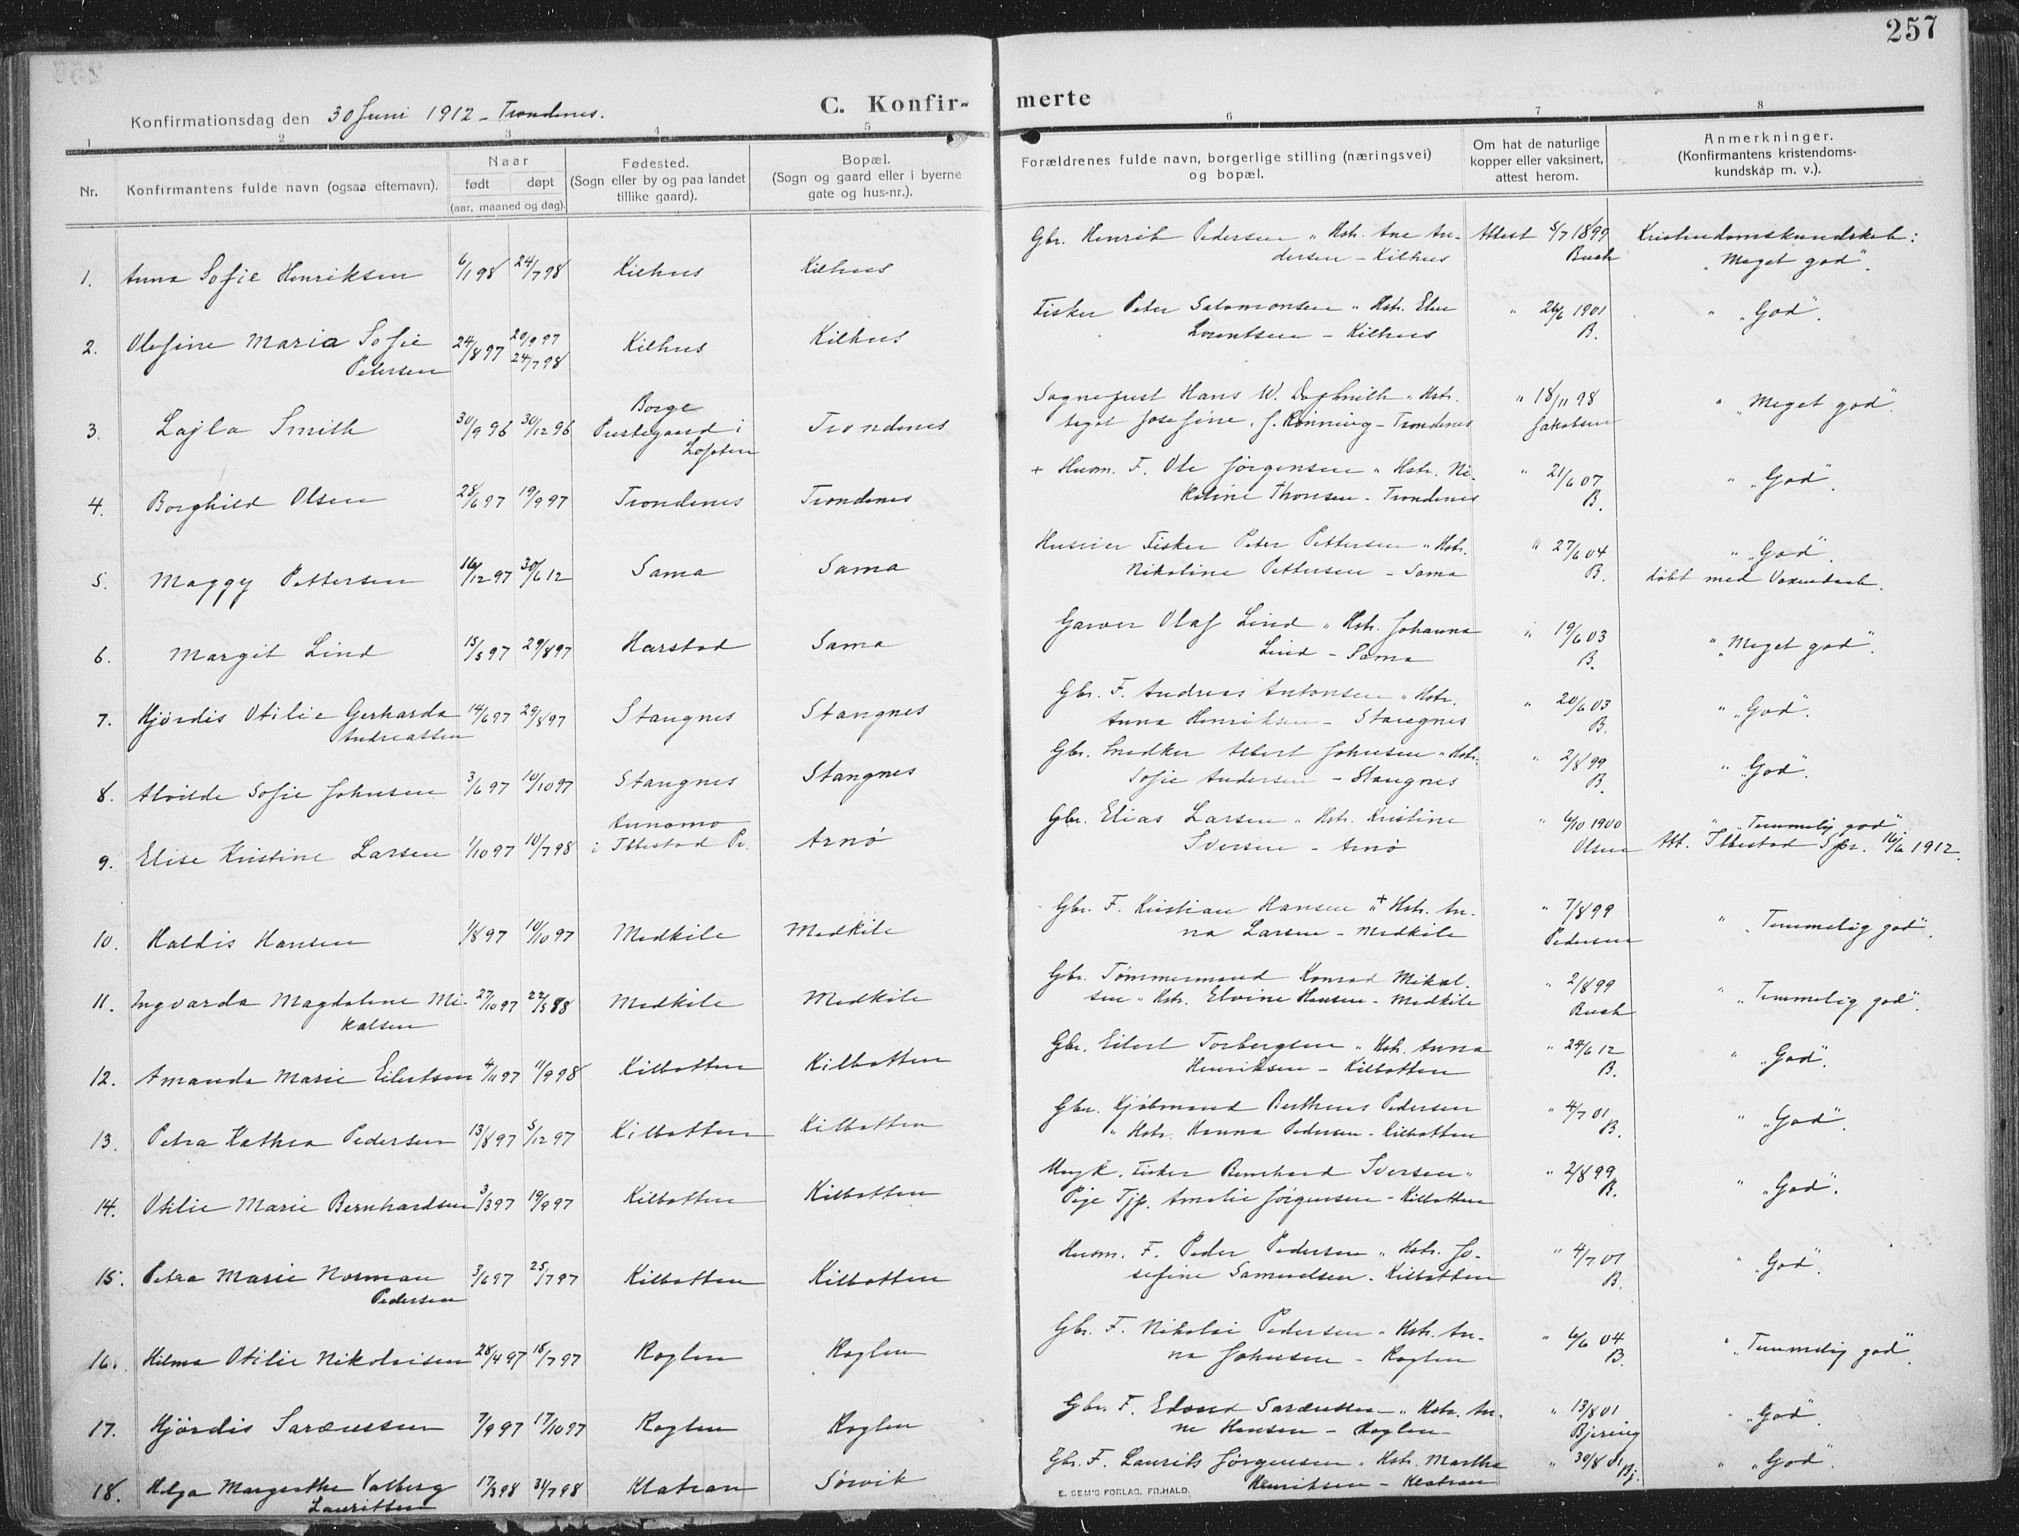 257
Konfirmationsdag den 30 Juni 1912 - Trondenes.
C. Konfir- merte
1 2 3 4 5 6 7 8
Nr.
Konfirmantens fulde navn (ogsaa efternavn).
Naar
født døpt
(aar, maaned og dag).
Fødested.
(Sogn eller by og paa landet
tillike gaard).
Bopæl.
(Sogn og gaard eller i byerne
gate og hus-nr.).
Forældrenes fulde navn, borgerlige stilling (næringsvei)
og bopæl.
Om hat de naturlige
kopper eller vaksinert,
attest herom.
Anmerkninger.
(Konfirmantens kristendoms-
kundskap m. v.).
Gbr. Henrik Pedersen " Hstr. Ane An- Attest 5/7 1899 Kristendomskundskab:
1. Anna Sofie Henriksen 6/1 98 24/7 98 Kilhus Kilhus dersen - Kilhus Buch "Meget god".
Fisker Peter Salomonsen " Hstr. Elen " 26/6 1901 " "God".
2. Olefine Maria Sofie 24/8 97 20/9 97 Kilhus Kilhus Lorentsen - Kilhus B.
Petersen 24/7 98
Borge
Sognepust Hans W. " Hstr. " 18/11 98 " "Meget god".
3. Lajla Smith 30/9 96 30/12 96 Prestegaard i Trondenes Josefine, f. Rönning - Trondenes Jakobsen
Lofoten
+ Husm. F. Ole Jørgensen " Hstr. Ni- " 21/6 07 " "God".
4. Borghild Olsen 28/6 97 19/9 97 Trondenes Trondenes koline Thomsen - Trondenes B.
Husier Fisker Peter Pettersen " Hstr. " 27/6 04 " "God".
5. Maggy Pettersen 16/12 97 30/6 12 Sama Sama Nikoline Pettersen - Sama B. døbt med Voxendaab.
Garver Olaf Lind " Hstr. Johanna " 19/6 03 " "Meget god".
6. Margit Lind 15/5 97 29/8 97 Harstad Sama Lind - Sama B.
Gbr. F. Andreas Antonsen " Hstr. " 20/6 03 " "God".
7. Hjørdis Otilie Gerharda 14/6 97 29/8 97 Stangnes Stangnes Anna Henriksen - Stangnes B.
Andreassen
Gbr. Snedker Albert Johnsen " Hstr. " 2/8 99 " "God".
8. Alvilde Sofie Johnsen 3/6 97 10/10 97 Stangnes Stangnes Sofie Andersen - Stangnes B.
Gbr. Elias Larsen " Hstr. Kristine " 6/10 1900 " "Temmelig god"
9. Elise Kristine Larsen 1/10 97 10/7 98 i Ibbestad Pr. Arnø Iversen - Arnø Olsen Att. Ibbestad Spr. 16/6 1912.
Gbr. F. Kristian Hansen "+ Hstr. An- " 7/8 99 " "Temmelig god".
10. Haldis Hansen 1/8 97 10/10 97 Medkile Medkile na Larsen - Medkile Pedersen
Gbr. Tømmermand Konrad Mikal- " 2/8 99 " "Temmelig god".
11. Ingvarda Magdalene Mi- 27/10 97 22/5 88 Medkile Medkile sen " Hstr. Elvine Hansen - Medkile Buch
kalsen
Gbr. Eilert Torbergsen " Hstr. Anna " 24/6 12 " "God".
12. Amanda Marie Eilertsen 4/11 97 11/9 98 Kilbotten Kilbotten Henriksen - Kilbotten B.
Gbr. Kjöbmand Bertheus Pedersen " 4/7 01 " "God".
13. Petra Kathea Pedersen 13/8 97 5/12 97 Kilbotten Kilbotten " Hstr. Hanna Pedersen - Kilbotten B.
Ungk. Fisker Bernhard Iversen " " 2/8 99 " "God".
14. Otilie Marie Bernhardsen 3/3 97 19/9 97 Kilbotten Kilbotten Pige Tjp. Amalie Jörgensen - Kilbotten B.
Husm. F. Peder Pedersen " Hstr. Jo- " 4/7 01 " "God".
15. Petra Marie Norman 3/6 97 25/7 97 Kilbotten Kilbotten sefine Samuelsen - Kilbotten B.
Pedersen
Gbr. F. Nikolai Pedersen " Hstr. An- " 6/6 04 " "Temmelig god".
16. Hilma Otilie Nikolaisen 28/4 97 18/7 97 Roglen Roglen na Johnsen - Roglen B.
Gbr. F. Edvard " Hstr. An- " 13/8 01 " "God".
17. Hjørdis 7/9 97 17/10 97 Roglen Roglen ne Hansen - Roglen Bjering
Gbr. F. Laurits Jørgensen " Hstr. Martha " 30/8 01 Bj. " "God".
18. Helga Margrethe Valborg 17/3 98 31/7 98 Klatran Sørvik Henriksen - Klatran
Lauritsen
E. SEM'S FORLAG, FR.HALD.